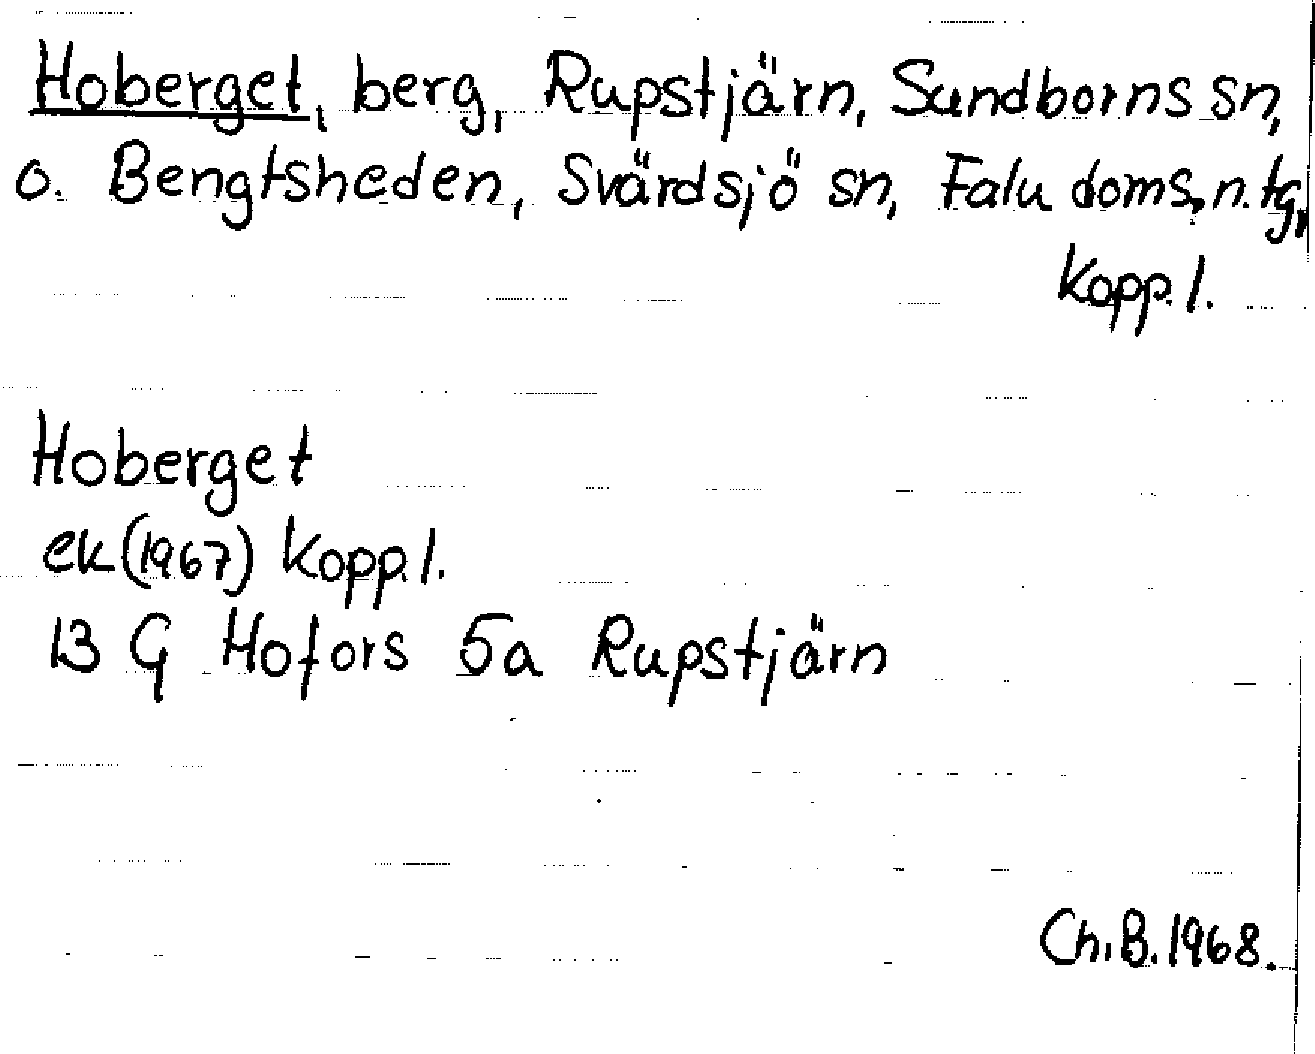 Hoberget, berg, Rupstjärn, Sundborns sn,
o. Bengtsheden, Svärdsjö sn, Falu doms, n. tg,
Kopp. l.
Hoberget
ek (1967) Kopp. l.
13 G Hofors 5a Rupstjärn
Ch. B. 1968.